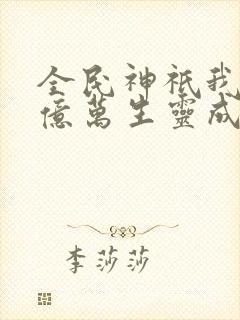 全民神祇我
億萬生靈成
李莎莎